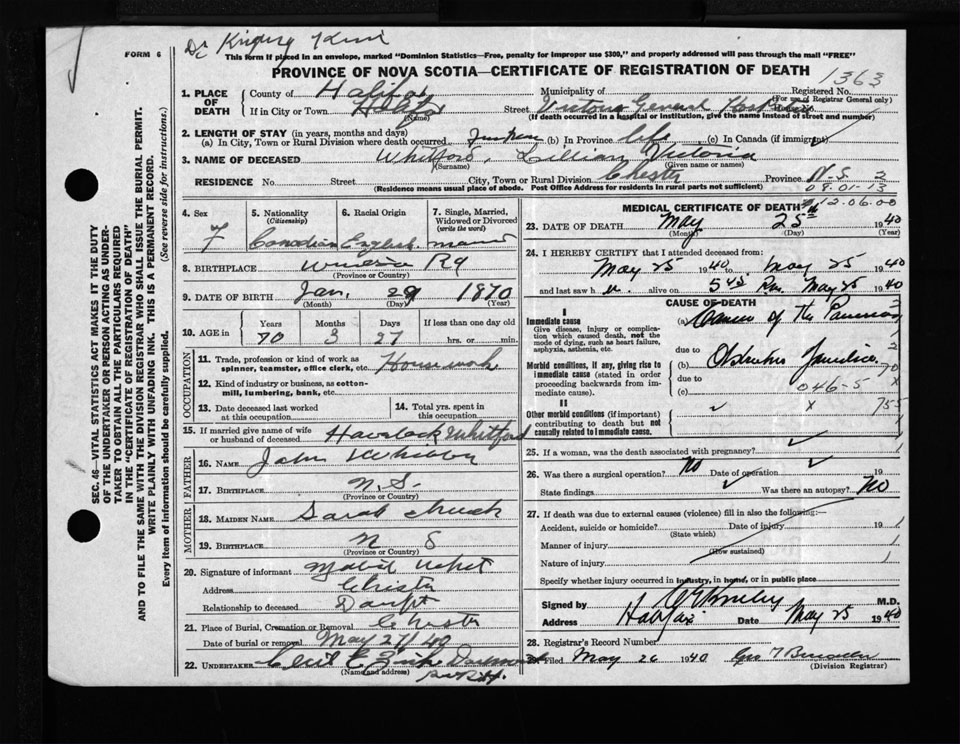 Dr
FORM 6
This form if placed in an envelope, marked "Dominion Statistics—Free, penalty for improper use $300," and properly addressed will pass through the mail "FREE"
PROVINCE OF NOVA SCOTIA—CERTIFICATE OF REGISTRATION OF DEATH
1363
1. PLACE OF DEATH
County of Halifax
Municipality of
Registered No.
(For use of Registrar General only)
If in City or Town Halifax
(Name)
Street Victoria General Hospital
(If death occurred in a hospital or institution, give the name instead of street and number)
2. LENGTH OF STAY (in years, months and days)
(a) In City, Town or Rural Division where death occurred
(b) In Province life (c) In Canada (if immigrant)
3. NAME OF DECEASED Whitford, Lillian Victoria
(Surname) (Given name or names)
RESIDENCE No. Street City, Town or Rural Division Chester Province N.S. 2
(Residence means usual place of abode. Post Office Address for residents in rural parts not sufficient)
08.01-13
12-06-00
4. Sex
F
5. Nationality
(Citizenship)
Canadian
6. Racial Origin
English
7. Single, Married, Widowed or Divorced
(write the word)
8. BIRTHPLACE
(Province or Country)
9. DATE OF BIRTH Jan. 29 1870
(Month) (Day) (Year)
10. AGE in
Years Months Days If less than one day old
70 3 27 hrs. or min.
OCCUPATION
11. Trade, profession or kind of work as spinner, teamster, office clerk, etc. Housework
12. Kind of industry or business, as cotton-mill, lumbering, bank, etc.
13. Date deceased last worked at this occupation
14. Total yrs. spent in this occupation
15. If married give name of wife or husband of deceased Havelock Whitford
FATHER
16. NAME John
17. BIRTHPLACE N.S.
(Province or Country)
MOTHER
18. MAIDEN NAME Sarah Church
19. BIRTHPLACE N S
(Province or Country)
20. Signature of informant
Address Chester
Relationship to deceased
21. Place of Burial, Cremation or Removal Chester
Date of burial or removal May 27/40
22. UNDERTAKER
(Name and address)
MEDICAL CERTIFICATE OF DEATH
23. DATE OF DEATH May 25th 1940
(Month) (Day) (Year)
24. I HEREBY CERTIFY that I attended deceased from:
May 25 1940 to May 25 1940
and last saw h alive on 5 May 25 1940
CAUSE OF DEATH
I
Immediate cause
Give disease, injury or complication which caused death, not the mode of dying, such as heart failure, asphyxia, asthenia, etc.
(a) Cancer of the Pancreas
due to
Morbid conditions, if any, giving rise to immediate cause (stated in order proceeding backwards from immediate cause).
(b) Jaundice
due to
(c) 046-5
II
Other morbid conditions (if important) contributing to death but not causally related to immediate cause.
755
25. If a woman, was the death associated with pregnancy?
26. Was there a surgical operation? No Date of operation 19
State findings Was there an autopsy? No
27. If death was due to external causes (violence) fill in also the following:—
Accident, suicide or homicide? Date of injury 19
(State which)
Manner of injury
(How sustained)
Nature of injury
Specify whether injury occurred in industry, in home, or in public place
Signed by M.D.
Address Halifax Date May 25 1940
28. Registrar's Record Number
Filed May 26 1940
(Division Registrar)
SEC. 46—VITAL STATISTICS ACT MAKES IT THE DUTY
OF THE UNDERTAKER OR PERSON ACTING AS UNDER-
TAKER TO OBTAIN ALL THE PARTICULARS REQUIRED
IN THE "CERTIFICATE OF REGISTRATION OF DEATH"
AND TO FILE THE SAME WITH THE DIVISION REGISTRAR WHO SHALL ISSUE THE BURIAL PERMIT.
WRITE PLAINLY WITH UNFADING INK. THIS IS A PERMANENT RECORD.
Every item of information should be carefully supplied. (See reverse side for instructions.)